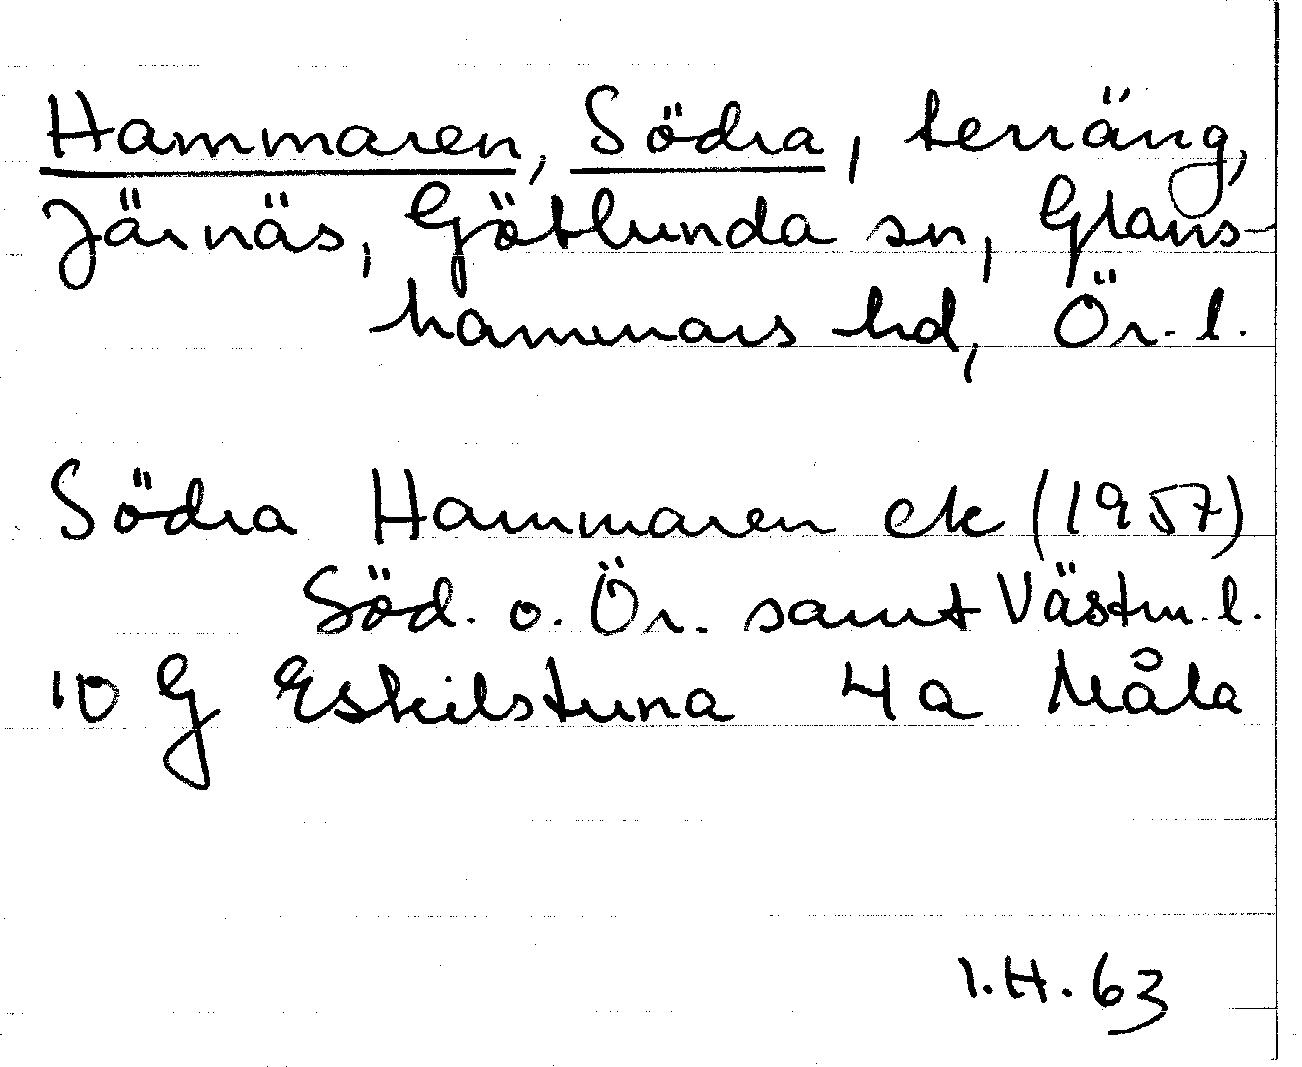 Hammaren, Södra, terräng,
Järnäs, Götlunda sn, Glans-
hammars hd, Ör. l.
Södra Hammaren ek (1957)
Söd. o. Ör. samt Västm. l.
10 G Eskilstuna 4a Måla
I.H. 63